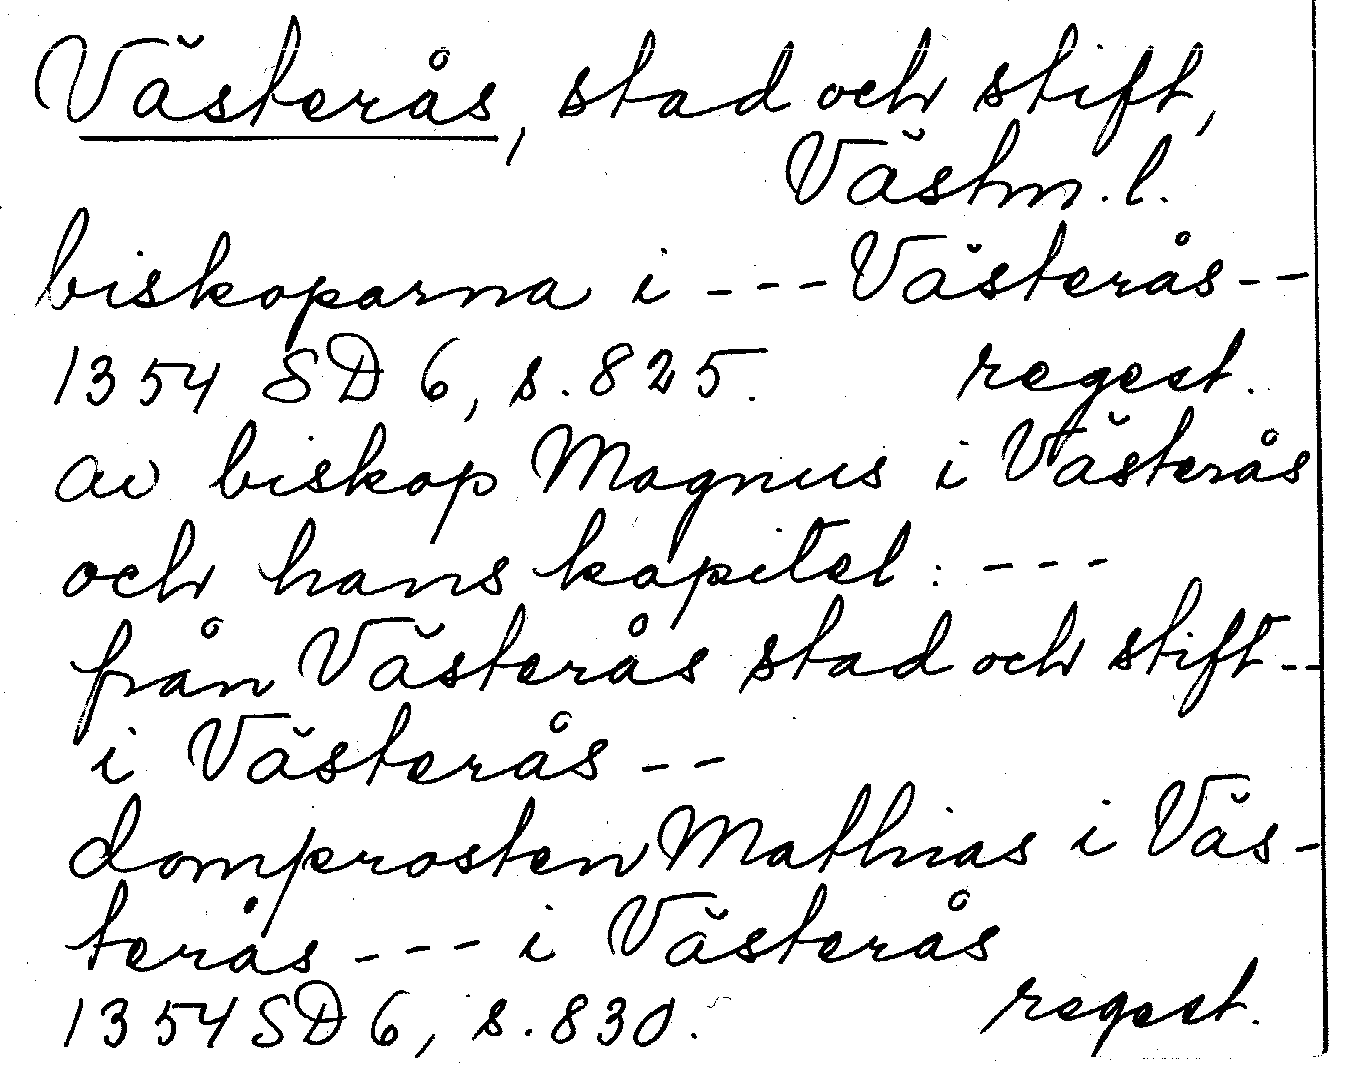 Västerås, stad och stift,
Västm.l.
biskoparna i --- Västerås --
1354 SD 6, s. 825. regest.
av biskop Magnus i Västerås
och hans kapitel: ---
från Västerås stad och stift --
i Västerås --
domprosten Mathias i Väs-
terås --- i Västerås
1354 SD 6, s. 830. regest.